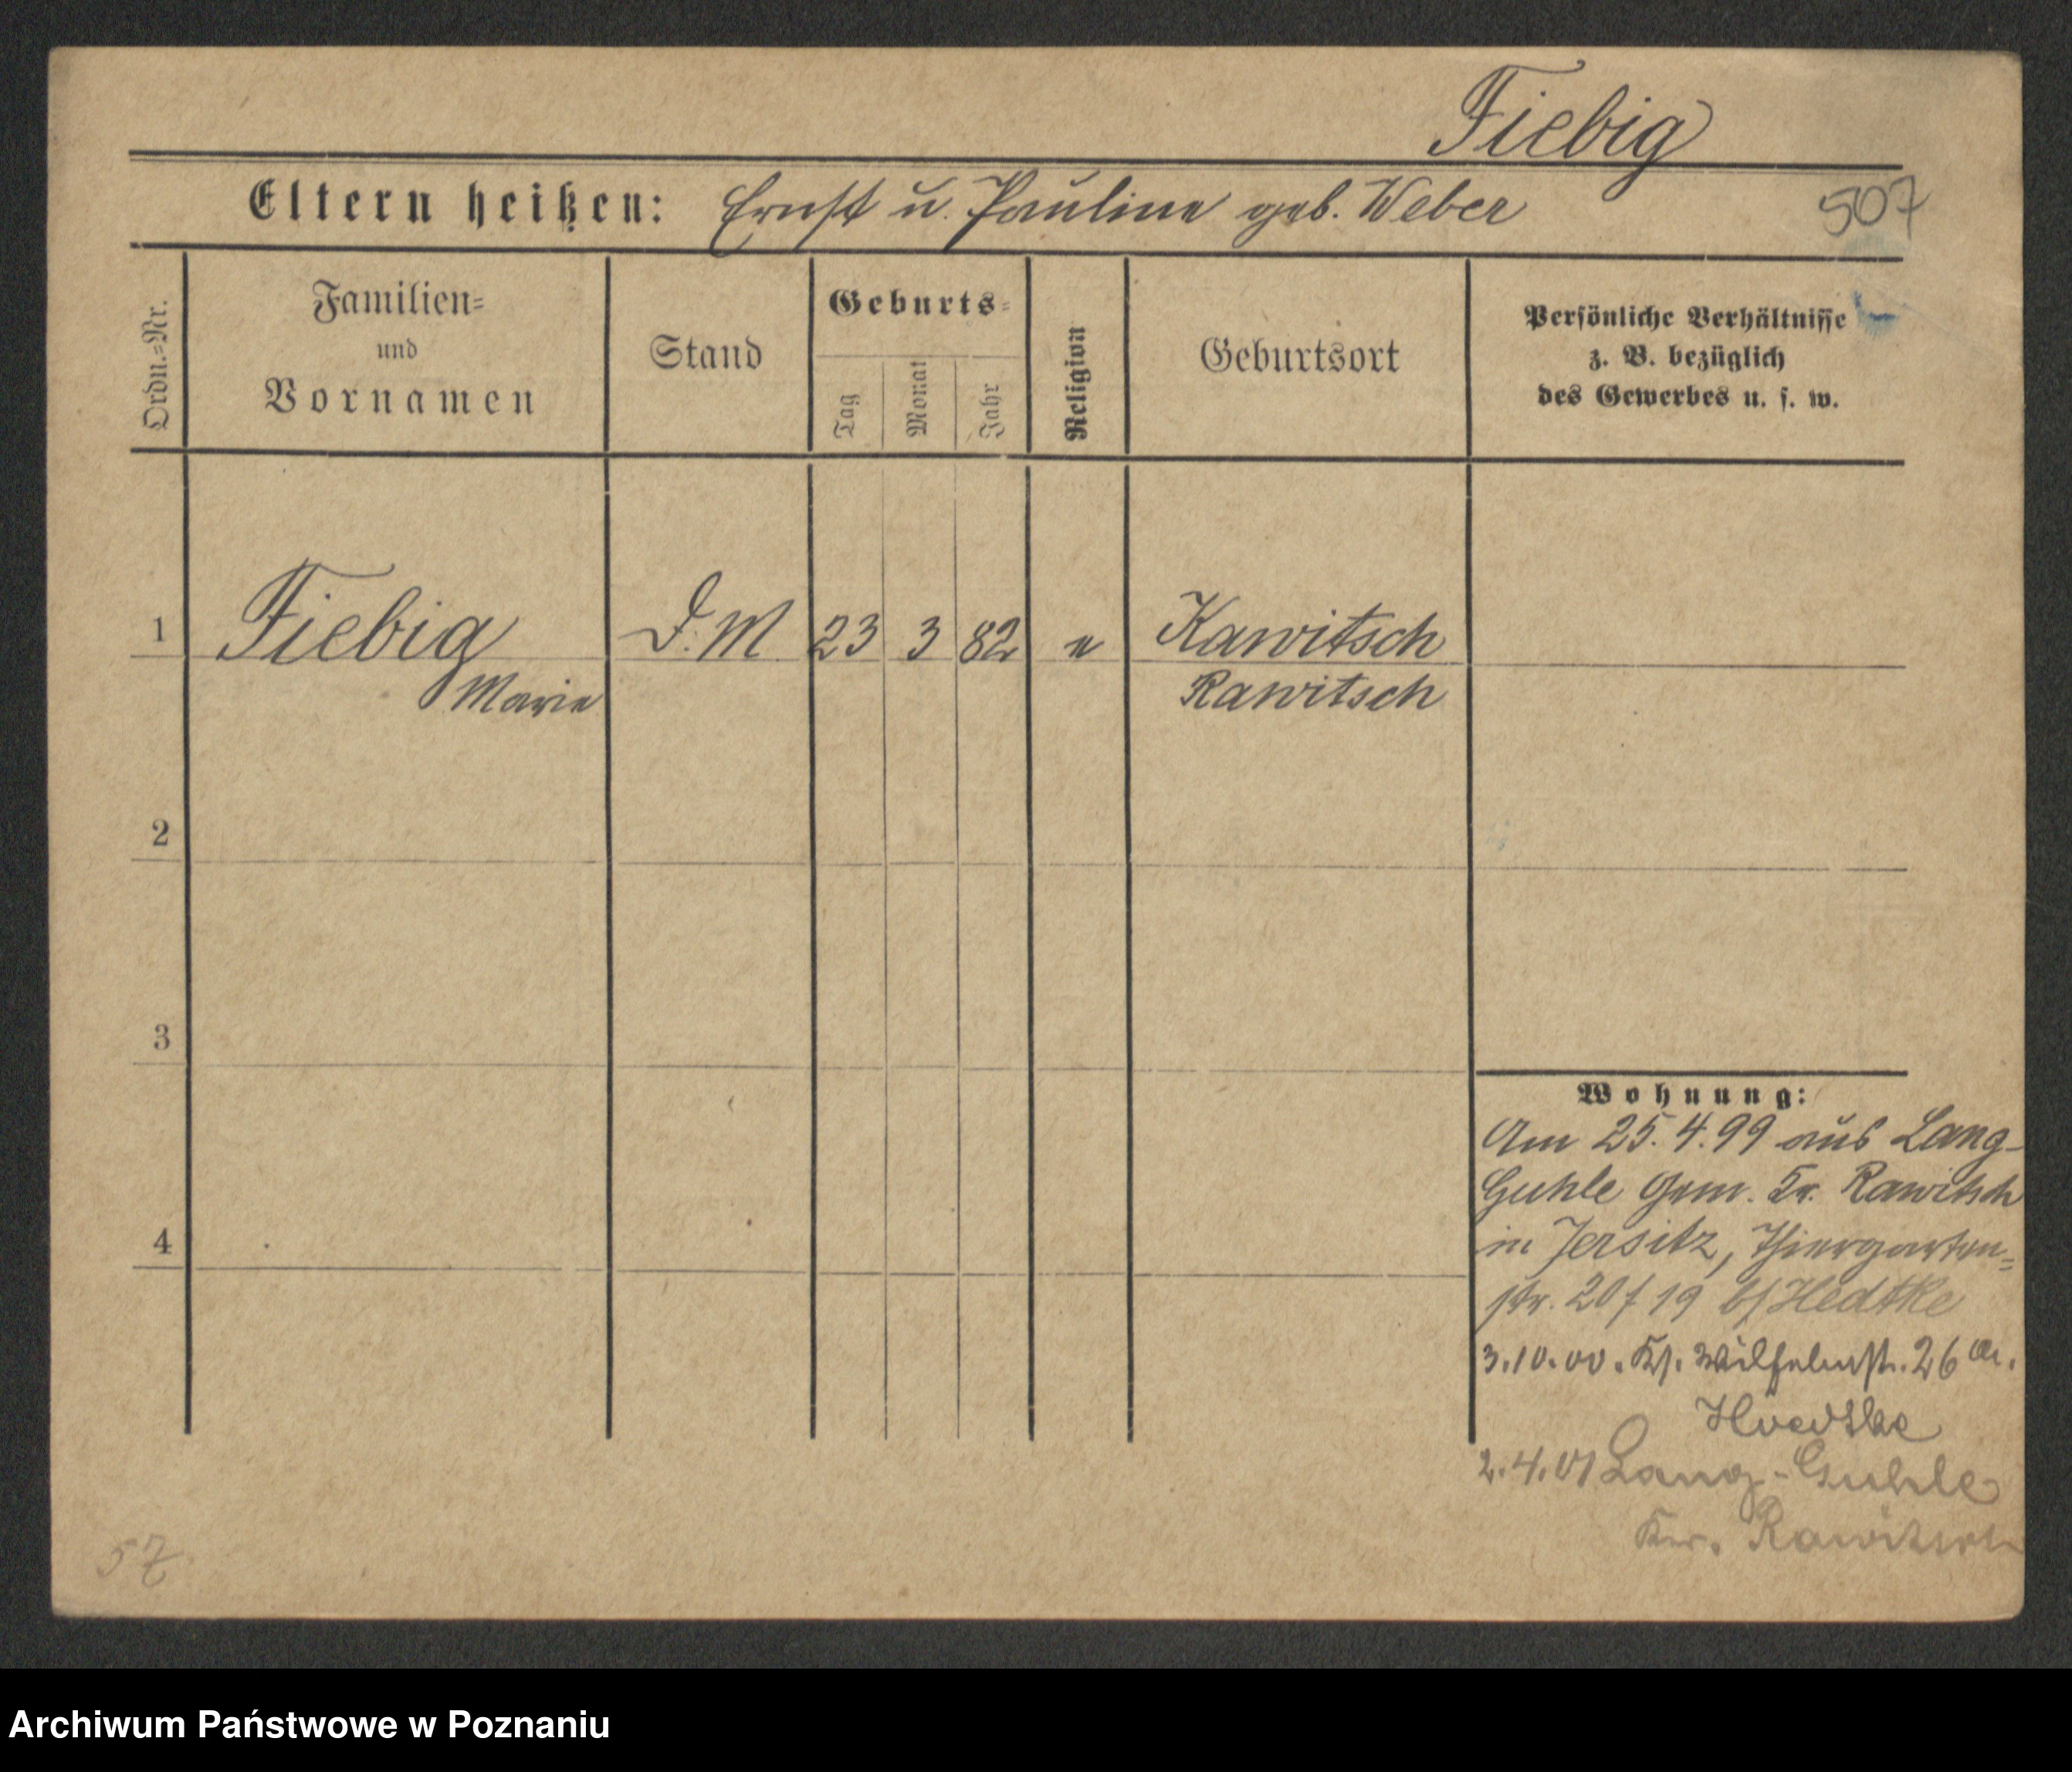 Fiebig
Eltern heißen: Ernst u. Pauline geb. Weber 507
Ordn.=Nr.
Familien=
und
Vornamen
Stand
Geburts=
Tag
Monat
Jahr
Religion
Geburtsort
Persönliche Verhältnisse
z. B. bezüglich
des Gewerbes u. s. w.
1 Fiebig D. M 23 3 82 e Rawitsch
Marie Rawitsch
2
3
4
Wohnung:
Am 25. 4. 99 aus Lang-
Guhle Gem. Kr. Rawitsch
in Jersitz, Thiergarten=
str. 20 f 19 b/ Hedtke
3.10.00. Ks. Wilhelmstr. 26
Hoedtke
2.4.01 Lang-Guhle
Kr. Rawitsch
57
Archiwum Państwowe w Poznaniu